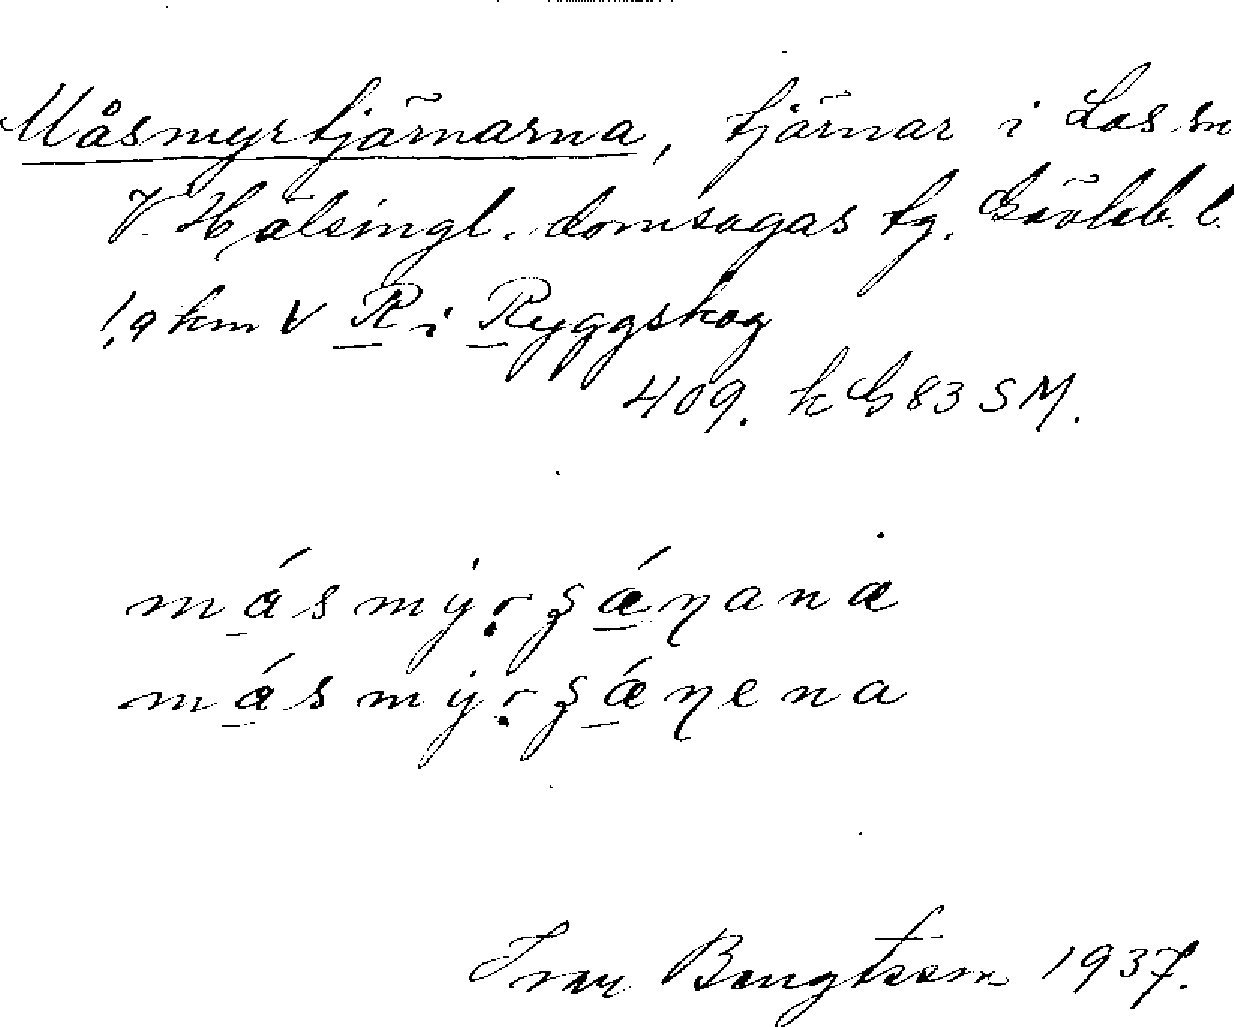 Måsmyrtjärnarna, tjärnar i Los sn
V. Hälsingl. domsagas tg. Gävleb. l.
1,9 km V R i Ryggskog
409. k G 83 SM.
måsmýrʂǽɳana
måsmýrʂǽɳena
Bengtsson 1937.